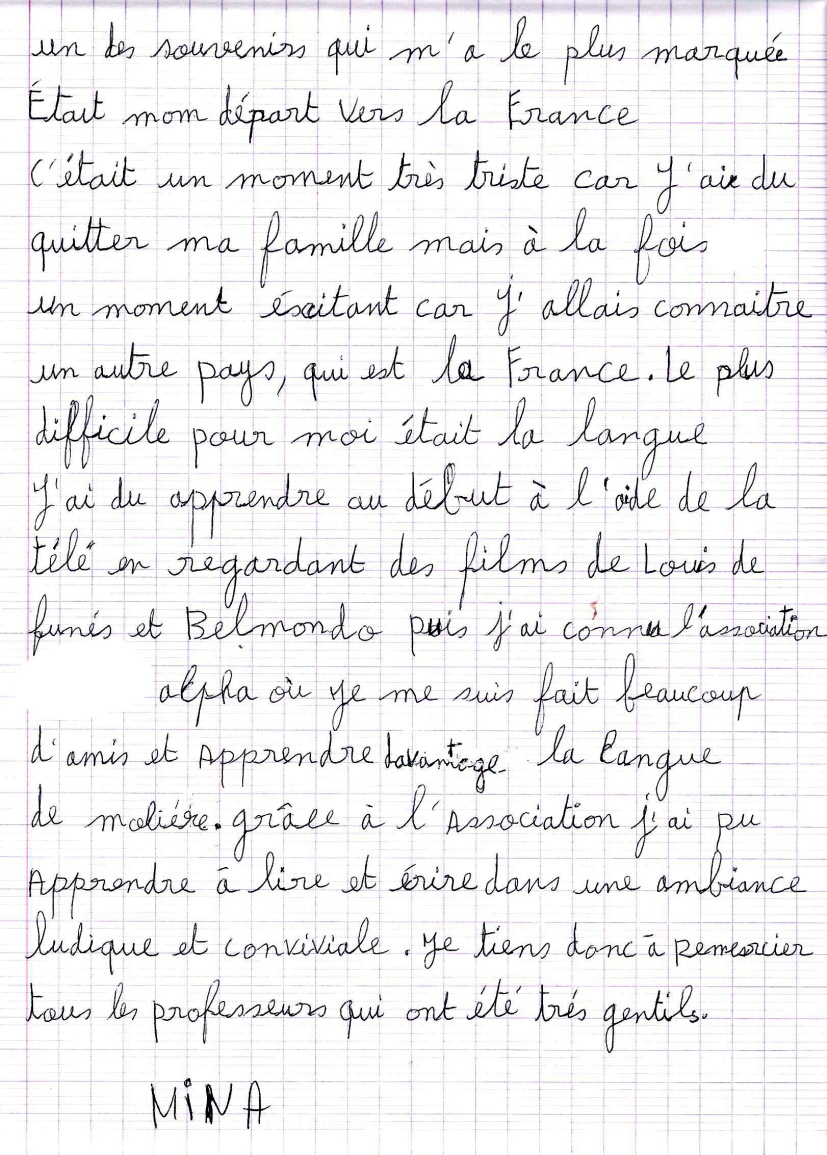 un des souvenirs qui m'a le plus marquée
Était mom départ vers la France
C'était un moment très triste car J'ai du
quitter ma famille mais à la fois
un moment éxitant car J' allais connaitre
un autre pays, qui est la France. Le plus
difficile pour moi était la langue
J'ai du apprendre au début à l'aide de la
télé en regardant des films de Louis de
funés et Belmondo puis j'ai connu l'association
alpha où Je me suis fait beaucoup
d'amis et Apprendre davantage la langue
de moliére. grâce à l'Association j'ai pu
Apprendre à lire et érire dans une ambiance
ludique et conviviale. Je tiens donc à remercier
tous les professeurs qui ont été trés gentils.
MiNA